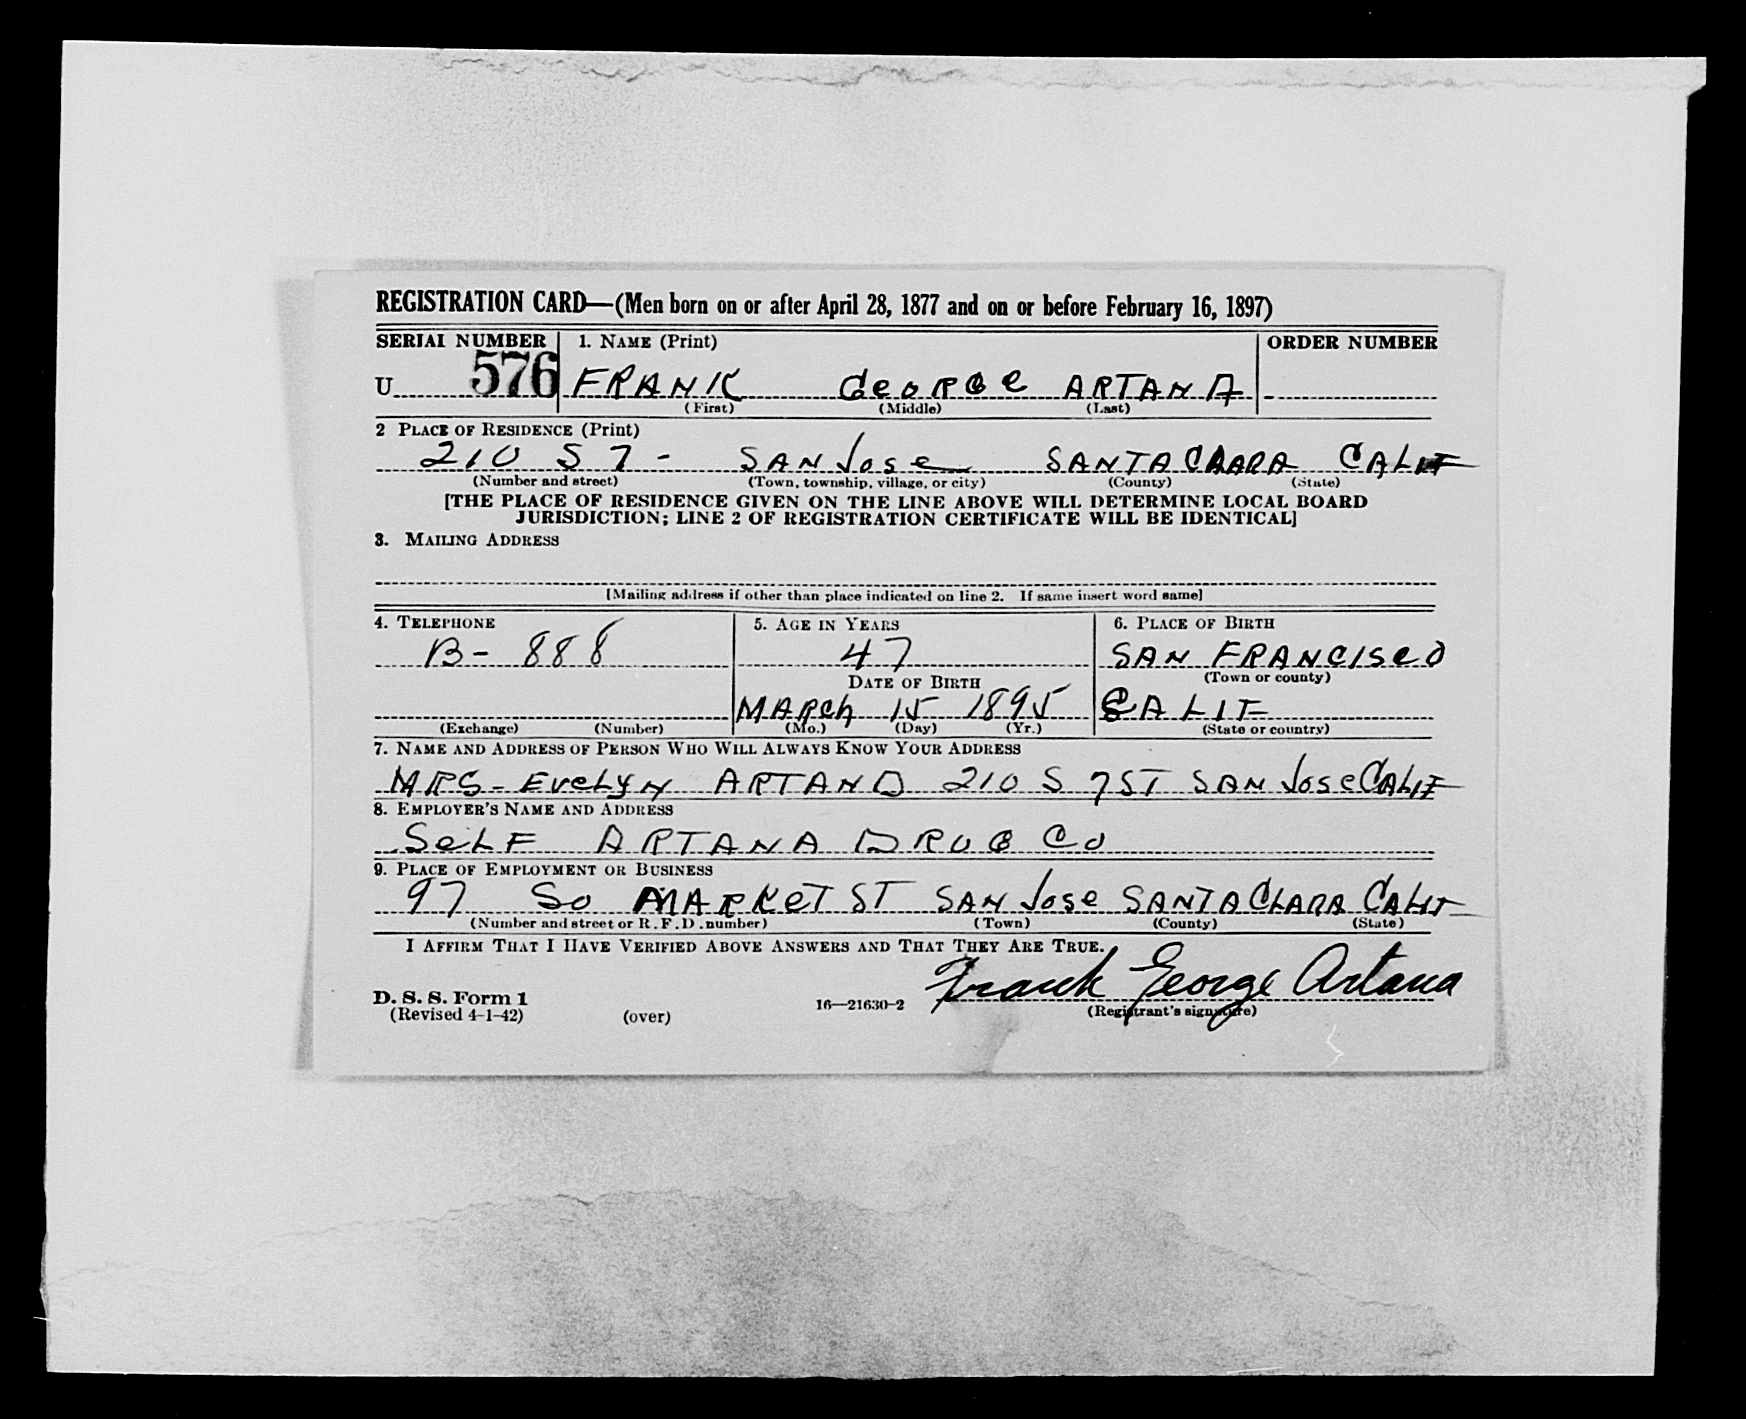 REGISTRATION CARD—(Men born on or after April 28, 1877 and on or before February 16, 1897)
SERIAL NUMBER 1. NAME (Print) ORDER NUMBER
U 576 FRANK GEORGE ARTANA
(First) (Middle) (Last)
2 PLACE OF RESIDENCE (Print)
210 S 7 - SAN JOSE SANTA CLARA CALIF
(Number and street) (Town, township, village, or city) (County) (State)
[THE PLACE OF RESIDENCE GIVEN ON THE LINE ABOVE WILL DETERMINE LOCAL BOARD
JURISDICTION; LINE 2 OF REGISTRATION CERTIFICATE WILL BE IDENTICAL]
3. MAILING ADDRESS
[Mailing address if other than place indicated on line 2. If same insert word same]
4. TELEPHONE 5. AGE IN YEARS 6. PLACE OF BIRTH
B- 888 47 SAN FRANCISCO
DATE OF BIRTH (Town or county)
MARCH 15 1895 CALIF
(Exchange) (Number) (Mo.) (Day) (Yr.) (State or country)
7. NAME AND ADDRESS OF PERSON WHO WILL ALWAYS KNOW YOUR ADDRESS
MRS- EVELYN ARTANA 210 S 7 ST SAN JOSE CALIF
8. EMPLOYER'S NAME AND ADDRESS
SELF ARTANA DRUG CO
9. PLACE OF EMPLOYMENT OR BUSINESS
97 SO MARKET ST SAN JOSE SANTA CLARA CALIF
(Number and street or R. F. D. number) (Town) (County) (State)
I AFFIRM THAT I HAVE VERIFIED ABOVE ANSWERS AND THAT THEY ARE TRUE.
Frank George Artana
D. S. S. Form 1 16—21630-2 (Registrant's signature)
(Revised 4-1-42) (over)